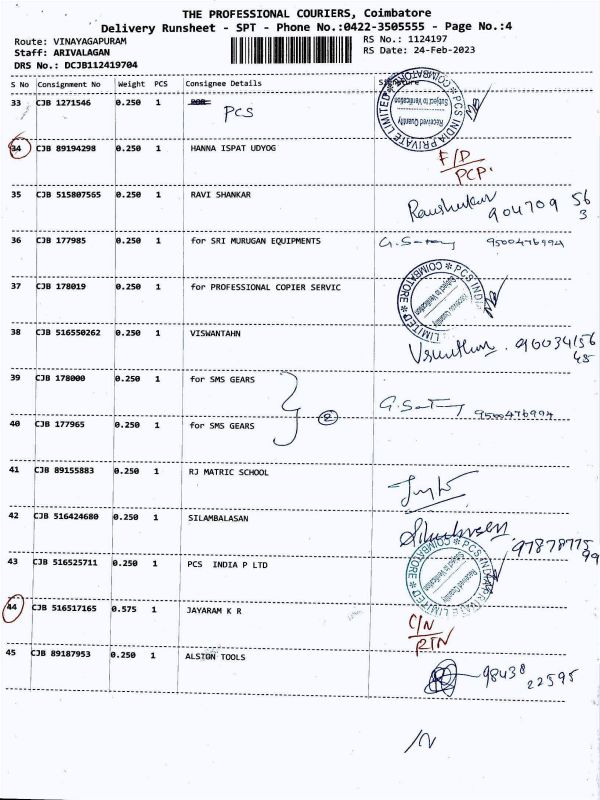 THE PROFESSIONAL COURIERS, Coimbatore
Delivery Runsheet - SPT - Phone No.:0422-3505555 - Page No.:4
Route: VINAYAGAPURAM
RS No.: 1124197
Staff: ARIVALAGAN
RS Date: 24-Feb-2023
DRS No.: DCJB112419704
S No Consignment No Weight PCS Consignee Details Signature
33 CJB 1271546 0.250 1 PCS
PCS INDIA PRIVATE LIMITED * COIMBATORE *
Received Quantity
Subject to Verification
34 CJB 89194298 0.250 1 HANNA ISPAT UDYOG
F/D
PCP.
35 CJB 515807565 0.250 1 RAVI SHANKAR
904709 56
3
36 CJB 177985 0.250 1 for SRI MURUGAN EQUIPMENTS
9500476994
37 CJB 178019 0.250 1 for PROFESSIONAL COPIER SERVIC
38 CJB 516550262 0.250 1 VISWANTAHN
90034156
45
39 CJB 178000 0.250 1 for SMS GEARS
2
9500476994
40 CJB 177965 0.250 1 for SMS GEARS
41 CJB 89155883 0.250 1 RJ MATRIC SCHOOL
42 CJB 516424680 0.250 1 SILAMBALASAN
97878775
99
43 CJB 516525711 0.250 1 PCS INDIA P LTD
44 CJB 516517165 0.575 1 JAYARAM K R
C/N
RTN
45 CJB 89187953 0.250 1 ALSTON TOOLS
98438
22595